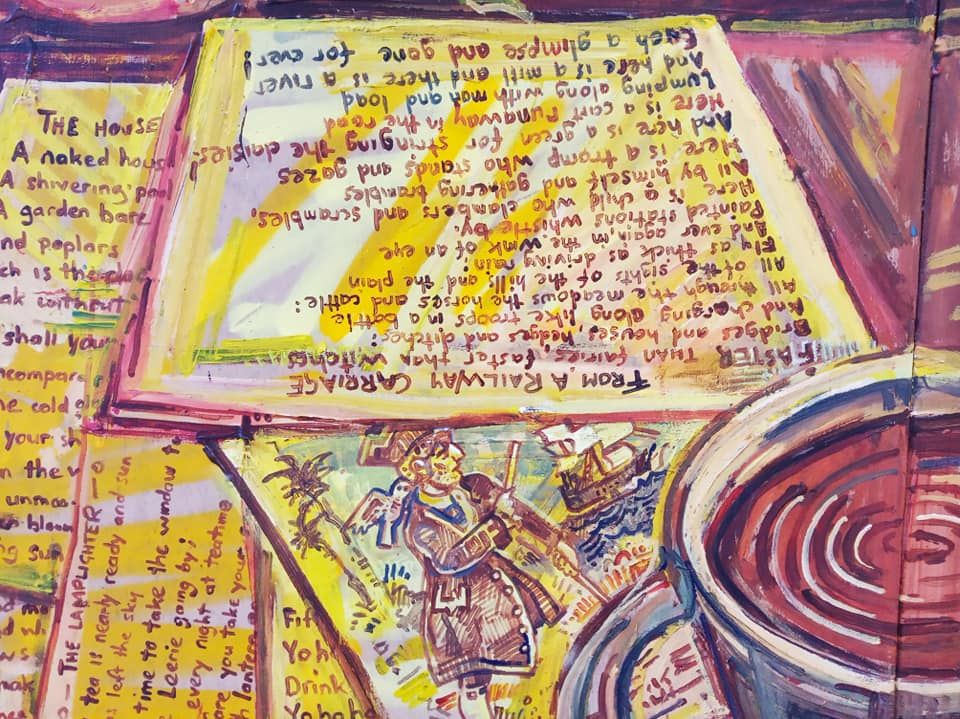 THE HOUSE
A naked hous
A shivering pool
A garden bare
nd poplars
ch is the
ak without
shall you
ncompar
he cold
your sh
n the
unmoo
bloom
sun
FROM A RAILWAY CARRIAGE
FASTER THAN fairies, faster than witches
Bridges and houses, hedges and ditches;
And charging along like troops in a battle
All through the meadows the horses and cattle:
All of the sights of the hill and the plain
Fly as thick as driving rain;
And ever again, in the wink of an eye
Painted stations whistle by.
Here is a child who clambers and scrambles,
All by himself and gathering brambles
Here is a tramp who stands and gazes
And here is a green for stringing the daisies!
Here is a cart runaway in the road
Lumping along with man and load
And here is a mill and there is a river
Each a glimpse and gone for ever!
THE LAMPLIGHTER
tea is nearly ready and sun
left the sky
time to take the window t
Leerie going by;
every night at teatime
are you take your
lantern
Fif
Yoh
Drink
Yoho